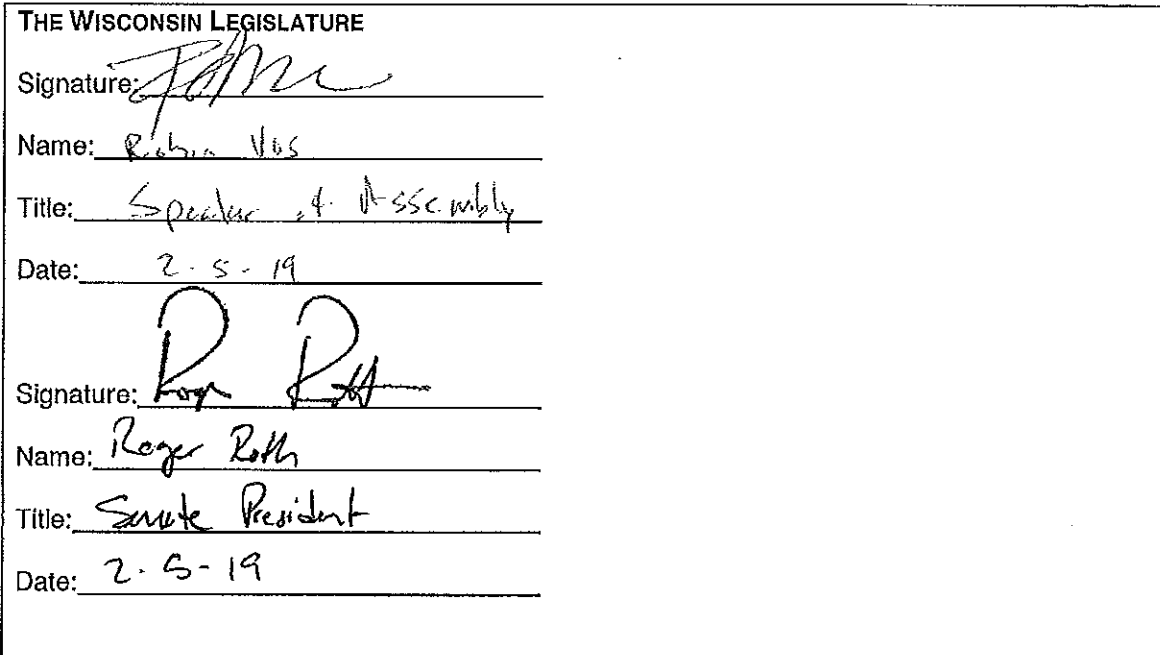 THE WISCONSIN LEGISLATURE
Signature:
Name: Robin Vos
Title: Speaker of Assembly
Date: 2-5-19
Signature: Roger Roth
Name: Roger Roth
Title: Senate President
Date: 2-5-19